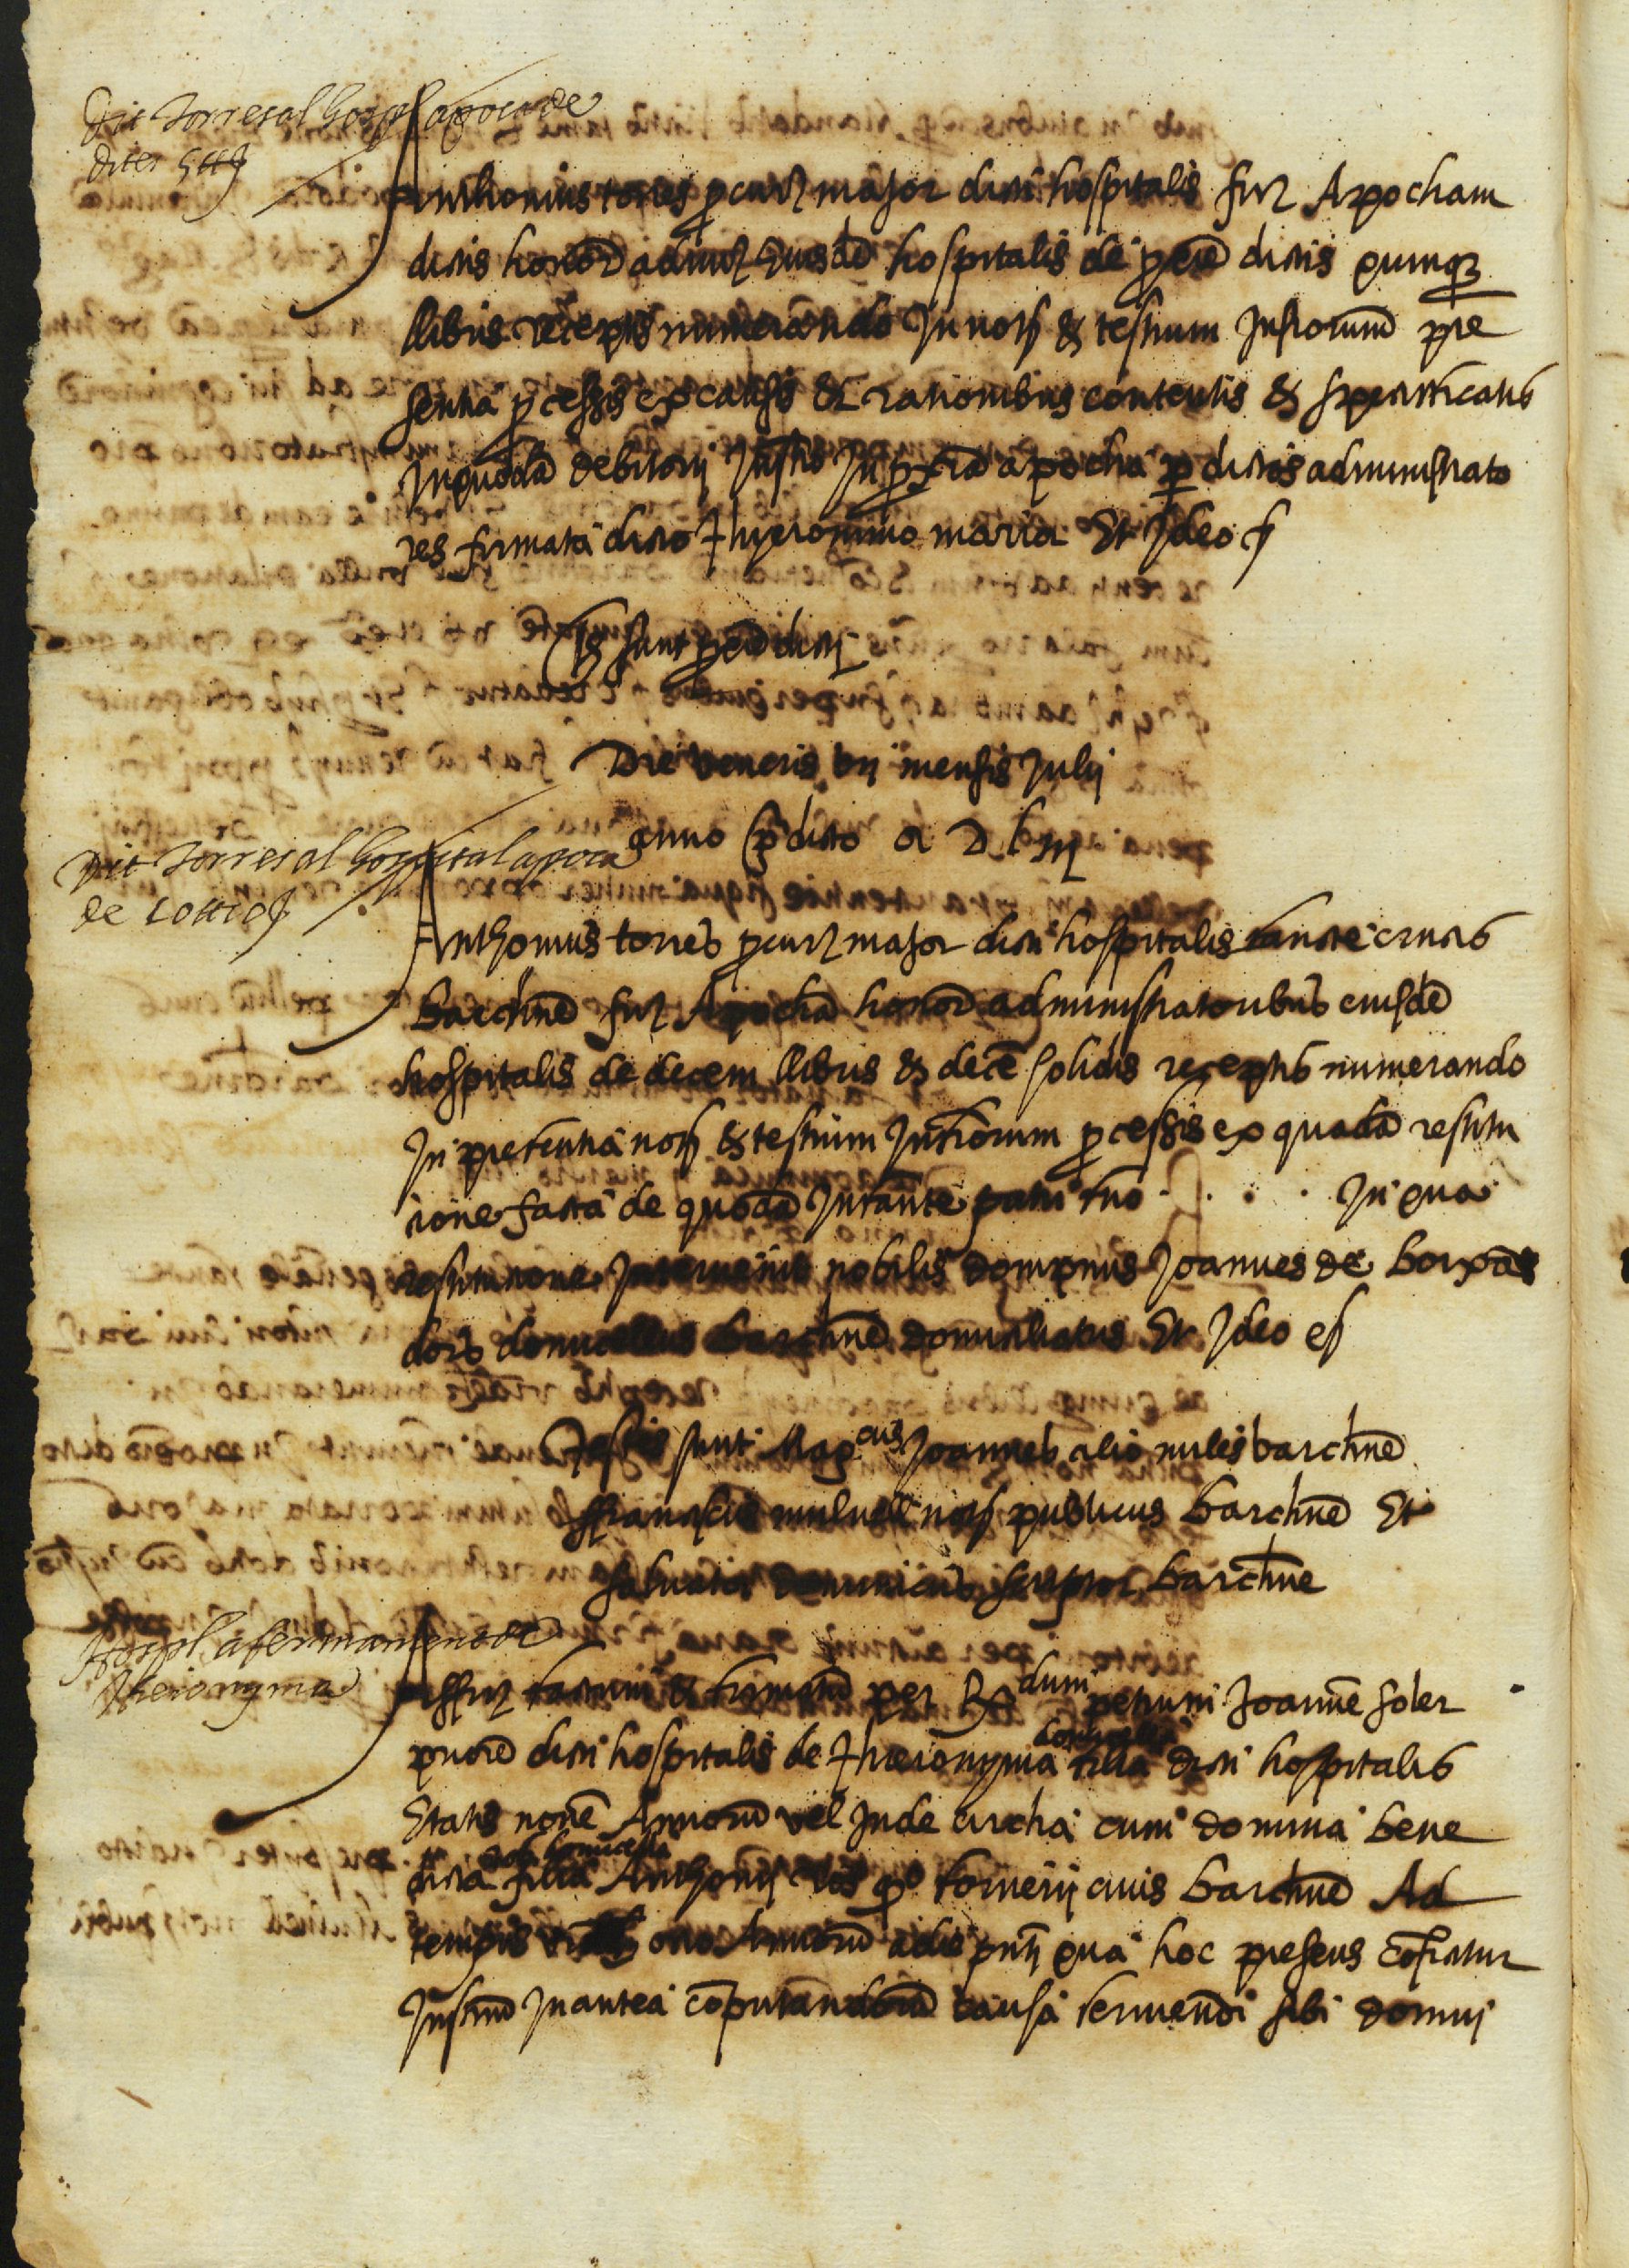 Dit Torres al hospl apoca de
dites 5 ℔
Anthonius torres procur maior dicti hospitalis fir Apocham
dictis honor admi eiusde hospitalis de predictis quinq
llibris receptis numerando In nots & testium Infrorum pre
sentia processis ex causis & rationibus contentis & specifficatis
In quoda debitorij Instro In proxia apocha per dictos administrato
res firmata dicto Hieronimo maria Et Ideo
Ts sunt predicti
Die veneris vij mensis Julij
anno predicto a D L iij
Dit Torres al hospital apoca
de
Anthonius torres procur maior dicti hospitalis sancte crucis
Barchne fir Apocha honor administratoribus eiusde
hospitalis de decem llibris & dece solidis receptis numerando
In presentia nots & testium Infrorum processis ex quada restitu
tione facta de quoda Infante patri suo . . . . In qua
restitutione Interueniut nobilis dompnus Joannes de boxa
dors domicellus barchne domiciliatus Et Ideo
Testes sunt Magcus Joannes miles barchne
ffranciscus nots publicus Barchne Et
saluator dominicus scriptor barchne
Hospl afermament de
Hieronyma
Affir factum & firmatu per Rdum petrum Joanne soler
priore dicti hospitalis de Hieronyma filia dicti hospitalis
Etatis noue Annoru vel Inde circha cum domina bene
dicta filia Anthonij qo tornerij ciuis barchne Ad
tempus octo Annoru a die pnti qua hoc presens cofictur
Instrum Inantea coputandoru causa seruiendi sibi domui